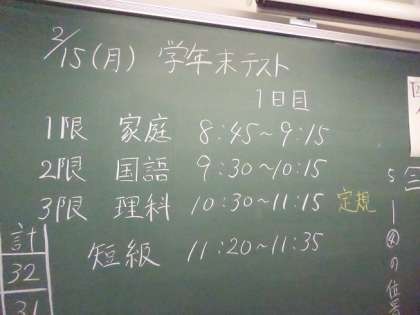 2/15(月) 学年末テスト
1日目
1限 家庭 8:45~9:15
2限 国語 9:30~10:15
3限 理科 10:30~11:15 定規
短級 11:20~11:35
計
32
31
5
|
④の位置